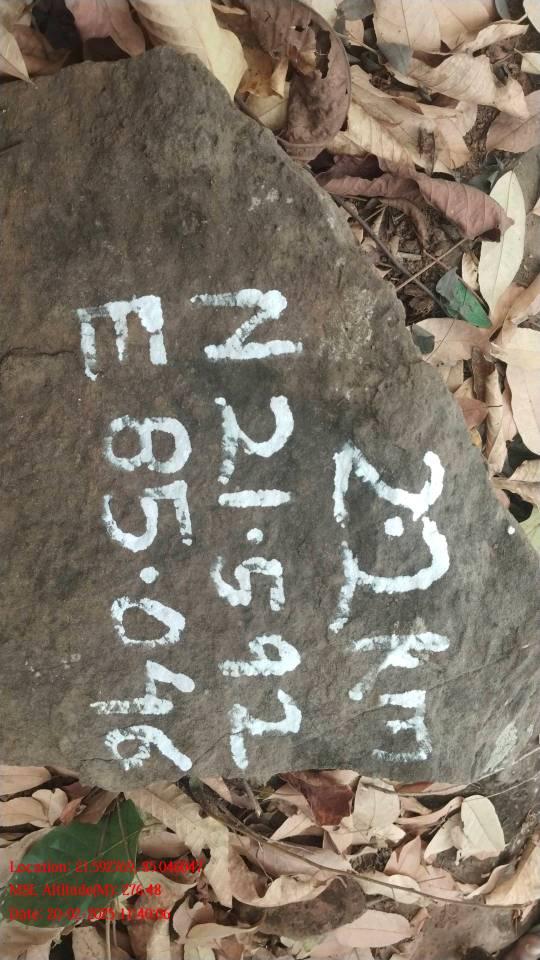 2.2 km
N 21.592
E 85.046
Location: 21.592763, 85.046047
MSL Altitude(M): 276.48
Date: 20-02-2025 11:40:06